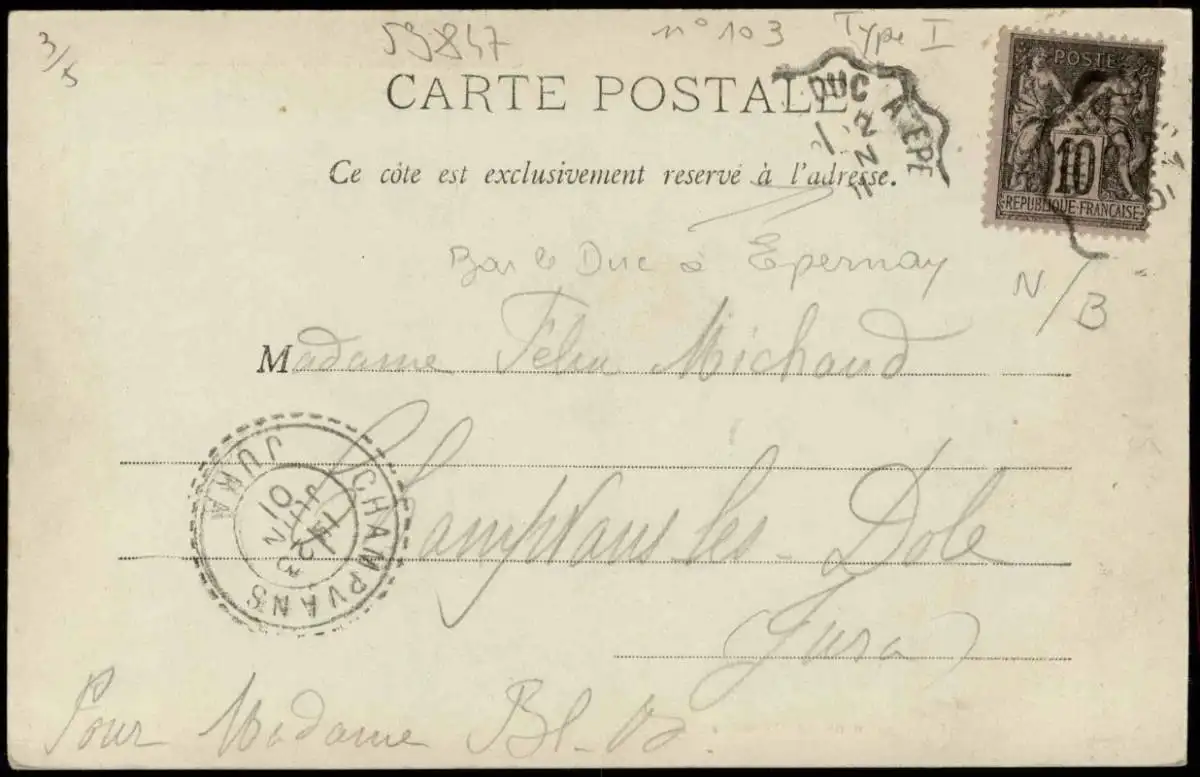 3/5
59847
n° 103 Type I
CARTE POSTALE
Ce côte est exclusivement reservé à l'adresse.
DUC A EPE
POSTE
10
REPUBLIQUE FRANÇAISE
Bar le Duc à Epernay
N/B
Madame Félix Michaud
Champvans les-Dole
Jura
CHAMPVANS
JURA
JUIN
01
Pour Madame Bl-